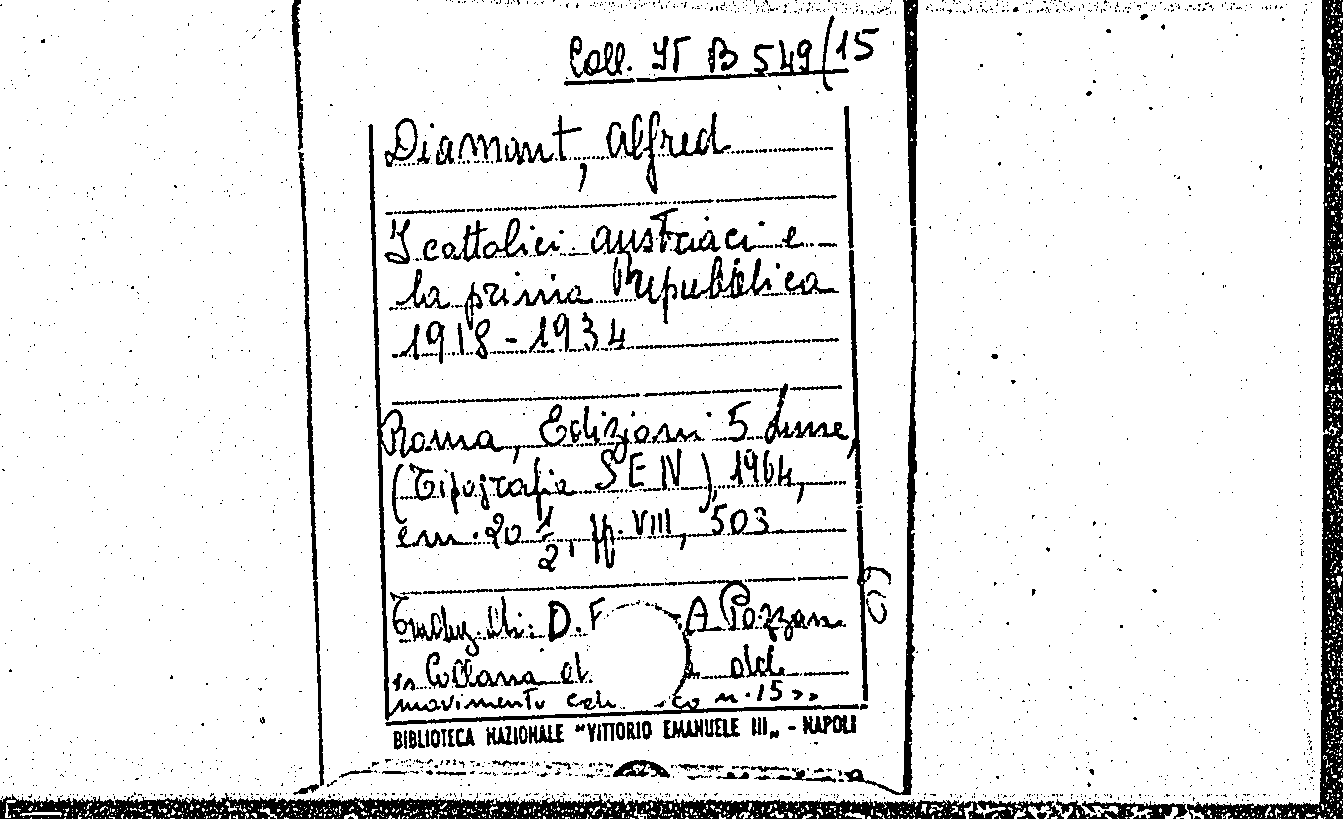 Coll. IT B 549/15
Diamant, Alfred
I cattolici austriaci e
la prima Repubblica
1918-1934
Roma, Edizioni 5 Lune,
(Tipografia SEN), 1964,
cm. 20 1/2, pp. VIII, 503
di: D. A Pozzan
Collana
movimento n. 15 »
BIBLIOTECA NAZIONALE "VITTORIO EMANUELE III„ - NAPOLI